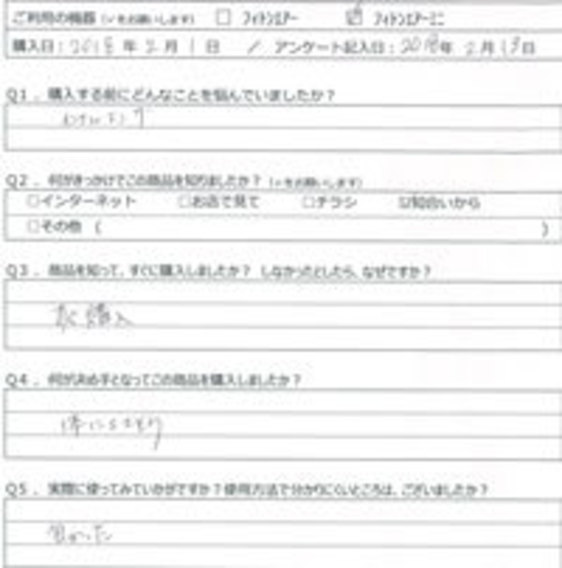 ご利用の機器 (✓をお願いします) □ フィトンエアー ☑ フィトンエアーミニ
購入日: 2018年 2月 1日 / アンケート記入日: 2018年 2月 19日
Q1. 購入する前にどんなことを悩んでいましたか?
Q2. 何がきっかけでこの商品を知りましたか? (✓をお願いします)
□インターネット □お店で見て □チラシ ☑知合いから
□その他 ( )
Q3. 商品を知って、すぐに購入しましたか? しなかったとしたら、なぜですか?
購入
Q4. 何が決め手となってこの商品を購入しましたか?
Q5. 実際に使ってみていかがですか?使用方法で分かりにくいところは、ございましたか?
良かった